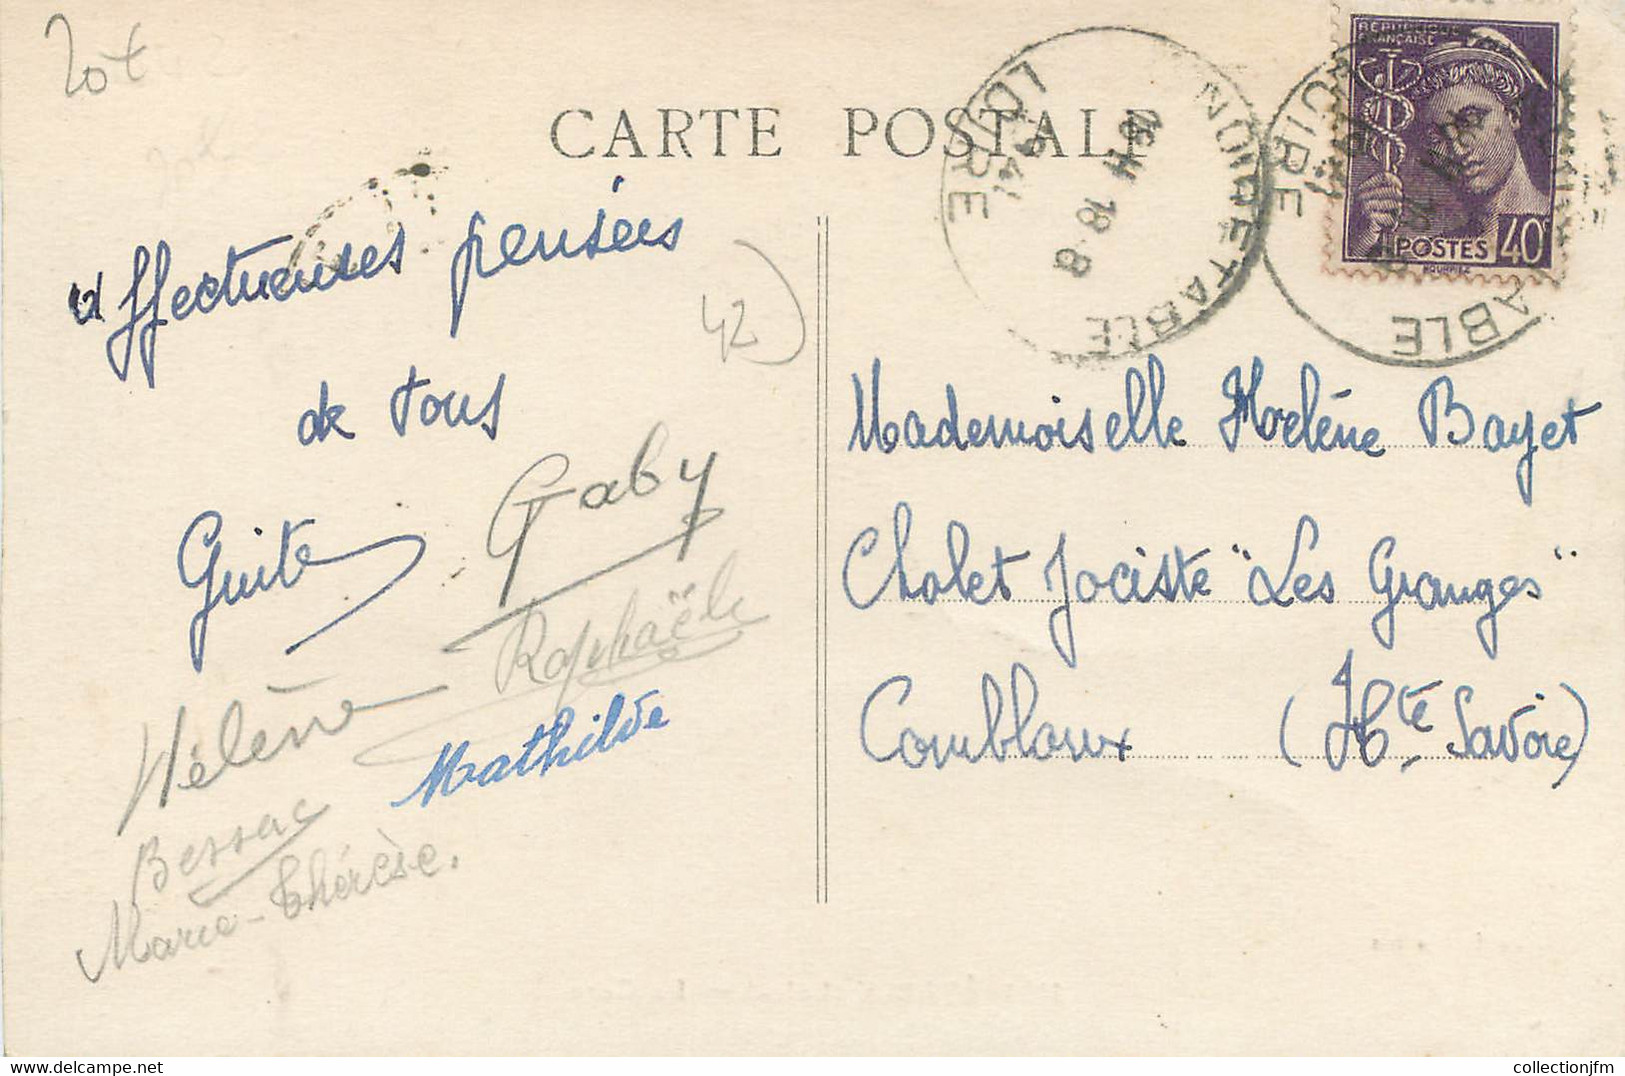 20€
CARTE POSTALE
NOIRETABLE
16 H 18-8
LOIRE
RÉPUBLIQUE
FRANÇAISE
POSTES 40
BOURPIEZ
NOIRETABLE
LOIRE
affectueuses pensées
de tous
42)
Guite
Gaby
Raphaële
Hélène
Mathilde
Bessac
Marie-Thérèse.
Mademoiselle Hélène Bayet
Chalet Jociste "Les Granges"
Combloux (Hte Savoie)
collectionjfm